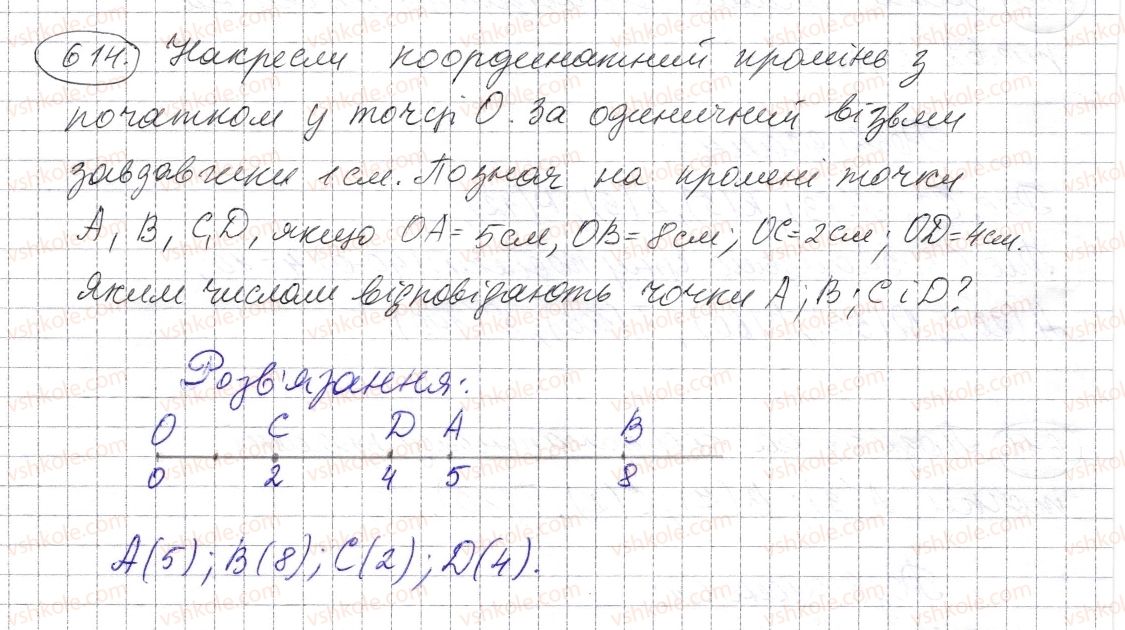 614. Накресли координатний промінь з
початком у точці О. За одиничний візьми
завдавжки 1 см. Познач на промені точки
A, B, C, D, якщо OA = 5см, OB = 8см; OC = 2см; OD = 4см.
Яким числам відповідають точки A; B; C і D?
Розв'язання:
O C D A B
0 2 4 5 8
A(5); B(8); C(2); D(4).